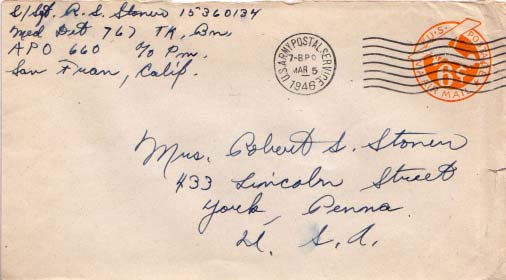 S/Sgt. R. S. Stoner 15360134
Med Det 767 TK. Bn.
APO 660 c/o P.m.
San Fran, Calif.
U.S. ARMY POSTAL SERVICE
MAR 5
1946
U.S. POSTAGE
6¢
AIR MAIL
Mrs. Robert S. Stoner
433 Lincoln Street
York, Penna.
U. S. A.